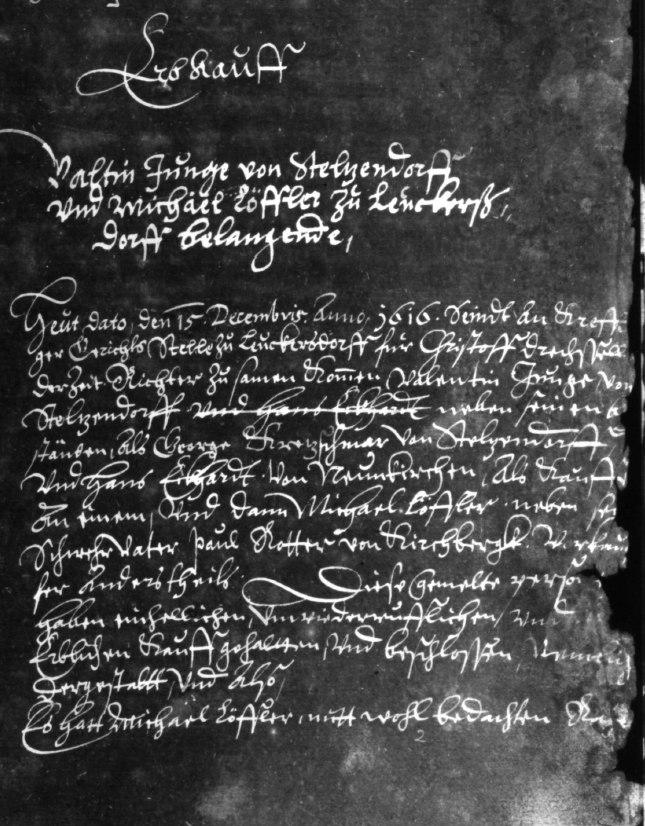 Erbkauff
Valtin Junge von Stelzendorff
vnd Michael Löffler zu Leuckerß,
dorff belangende,
Heut dato, den 15. Decembris. Anno, 1616. Seindt an
ger Gerichts Stelle zu Leuckersdorff für Christoff
der Zeit Richter zu samen kommen, Valentin Junge von
Stelzendorff vnd Hans Eckhardt neben seinen
ständen, als George Kretzschmar von Stelzendorff
vnd Hans Eckhardt von Neunkirchen, Als Kauff
an einem, Vnd dann Michael Löffler neben
Schwehr Vater Paul Kotter von Kirchbergk. V.
fer anders theils. Diese gemelte
haben einhellichen, vnwiederrufflichen,
Erblichen Kauff gehalten, Vnd beschlossen,
Dergestaltt, Vnd also,
Es hatt Michael Löffler, mitt wohl bedachten
2